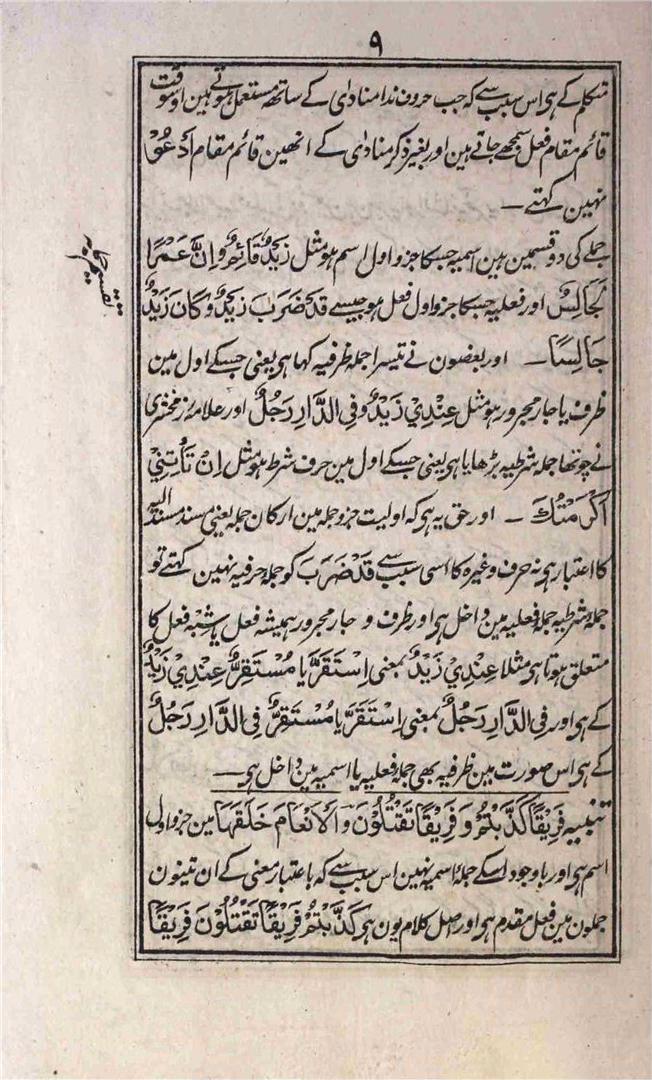 ۹
متکلم کے ہی اس سبب سے کہ جب حروف ندا منادٰی کے ساتھ مستعمل ہوتے ہین اوسوقت
قائم مقام فعل سمجھے جاتے ہین اور بغیر ذکر منادٰی کے انھین قائم مقام اَدْعُوْ
نہین کہتے ـ
جملے کی دو قسمین ہین اسمیہ جسکا جزو اول اسم ہو مثل زَیْدٌ قَائِمٌ وَاِنَّ عَمْرًا
لَجَالِسٌ اور فعلیہ جسکا جزو اول فعل ہو جیسے قَدْ ضَرَبَ زَیْدٌ وکَانَ زَیْدٌ
جَالِسًا ـ اور بعضون نے تیسرا جملہ ظرفیہ کہا ہی یعنی جسکے اول مین
ظرف یا جار مجرور ہو مثل عِنْدِيْ زَیْدٌ وفِی الدَّارِ رَجُلٌ اور علامہ زمخشری
نے چوتھا جملہ شرطیہ بڑھایا ہی یعنی جسکے اول مین حرف شرط ہو مثل اِنْ تَأْتِنِيْ
اَکْرَمْتُكَ ـ اور حق یہ ہی کہ اولیت جزو جملہ مین ارکان جملہ یعنی مسند مسند الیہ
کا اعتبار ہی نہ حرف وغیرہ کا اسی سبب سے قَدْ ضَرَبَ کو جملہ حرفیہ نہین کہتے تو
جملہ شرطیہ جملہ فعلیہ مین داخل ہی اور ظرف و جار مجرور ہمیشہ فعل یا شبہ فعل کا
متعلق ہوتا ہی مثلا عِنْدِيْ زَیْدٌ بمعنی اِسْتَقَرَّ یا مُسْتَقِرٌّ عِنْدِيْ زَیْدٌ
کے ہی اور فِی الدَّارِ رَجُلٌ بمعنی اِسْتَقَرَّ یا مُسْتَقِرٌّ فِی الدَّارِ رَجُلٌ
کے ہی اس صورت مین ظرفیہ بھی جملہ فعلیہ یا اسمیہ مین داخل ہی ـ
تنبیہ فَرِیْقًا کَذَّبْتُمْ وَ فَرِیْقًا تَقْتُلُوْنَ وَ الْاَنْعَامَ خَلَقَهَا مین جزو اول
اسم ہی اور باوجود اسکے جملۂ اسمیہ نہین اس سبب سے کہ باعتبار معنی کے ان تینون
جملون مین فعل مقدم ہی اور اصل کلام یون ہی کَذَّبْتُمْ فَرِیْقًا تَقْتُلُوْنَ فَرِیْقًا